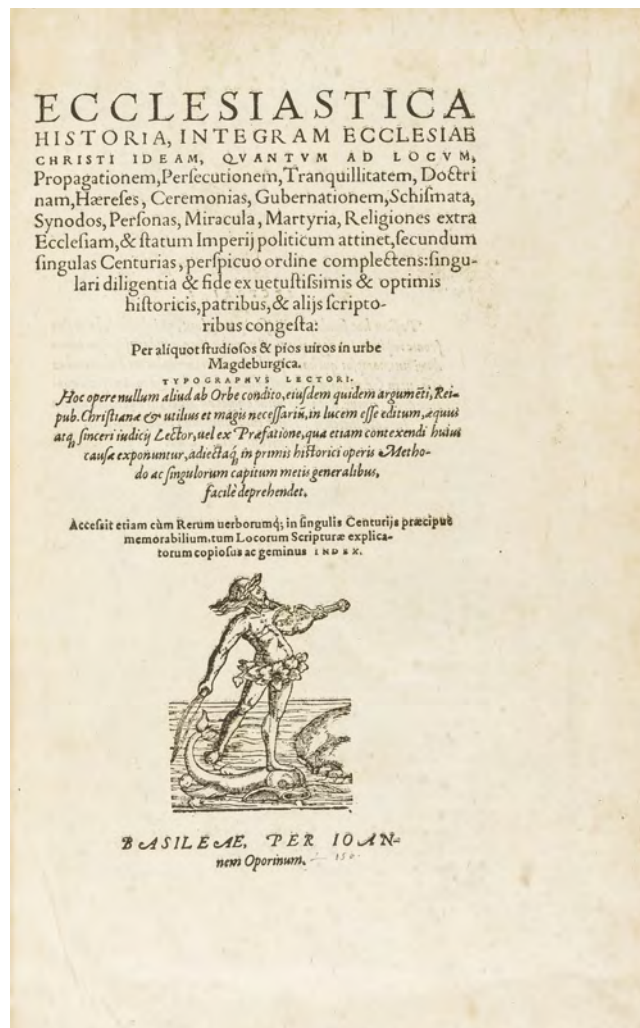 ECCLESIASTICA
HISTORIA, INTEGRAM ECCLESIAE
CHRISTI IDEAM, QVANTVM AD LOCVM,
Propagationem,Perſecutionem,Tranquillitatem, Doctri
nam,Hæreſes, Ceremonias, Gubernationem,Schiſmata,
Synodos, Perſonas, Miracula, Martyria, Religiones extra
Eccleſiam,& ſtatum Imperij politicum attinet,ſecundum
ſingulas Centurias, perſpicuo ordine complectens:ſingu-
lari diligentia & fide ex uetuſtiſsimis & optimis
hiſtoricis,patribus,& alijs ſcripto-
ribus congeſta:
Per aliquot ſtudioſos & pios uiros in urbe
Magdeburgica.
TYPOGRAPHVS LECTORI.
Hoc opere nullum aliud ab Orbe condito,eiuſdem quidem argumēti,Rei-
pub.Chriſtianæ & utilius et magis neceſſariū,in lucem eſſe editum,æquus
atq; ſinceri iudicij Lector,uel ex Præfatione,qua etiam contexendi huius
cauſæ exponuntur,adiectaq; in primis hiſtorici operis Metho-
do ac ſingulorum capitum metis generalibus,
facilè deprehendet.
Acceſsit etiam cùm Rerum uerborumq; in ſingulis Centurijs præcipuè
memorabilium,tum Locorum Scripturæ explica-
torum copioſus ac geminus INDEX.
BASILEAE, PER IOAN-
nem Oporinum.